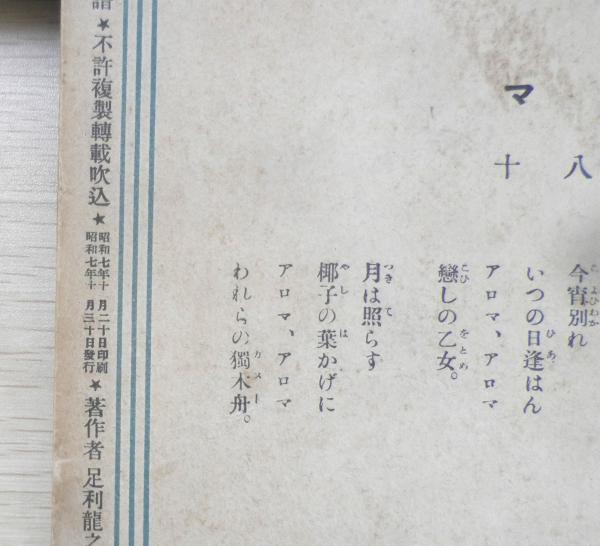 マ
八十
今宵別れ
いつの日逢はん
アロマ、アロマ
戀しの乙女。
月は照らす
椰子の葉かげに
アロマ、アロマ
われらの獨木舟。
譜★不許複製轉載吹込★昭和七年十月二十日印刷
昭和七年十月三十日發行★著作者 足利龍之